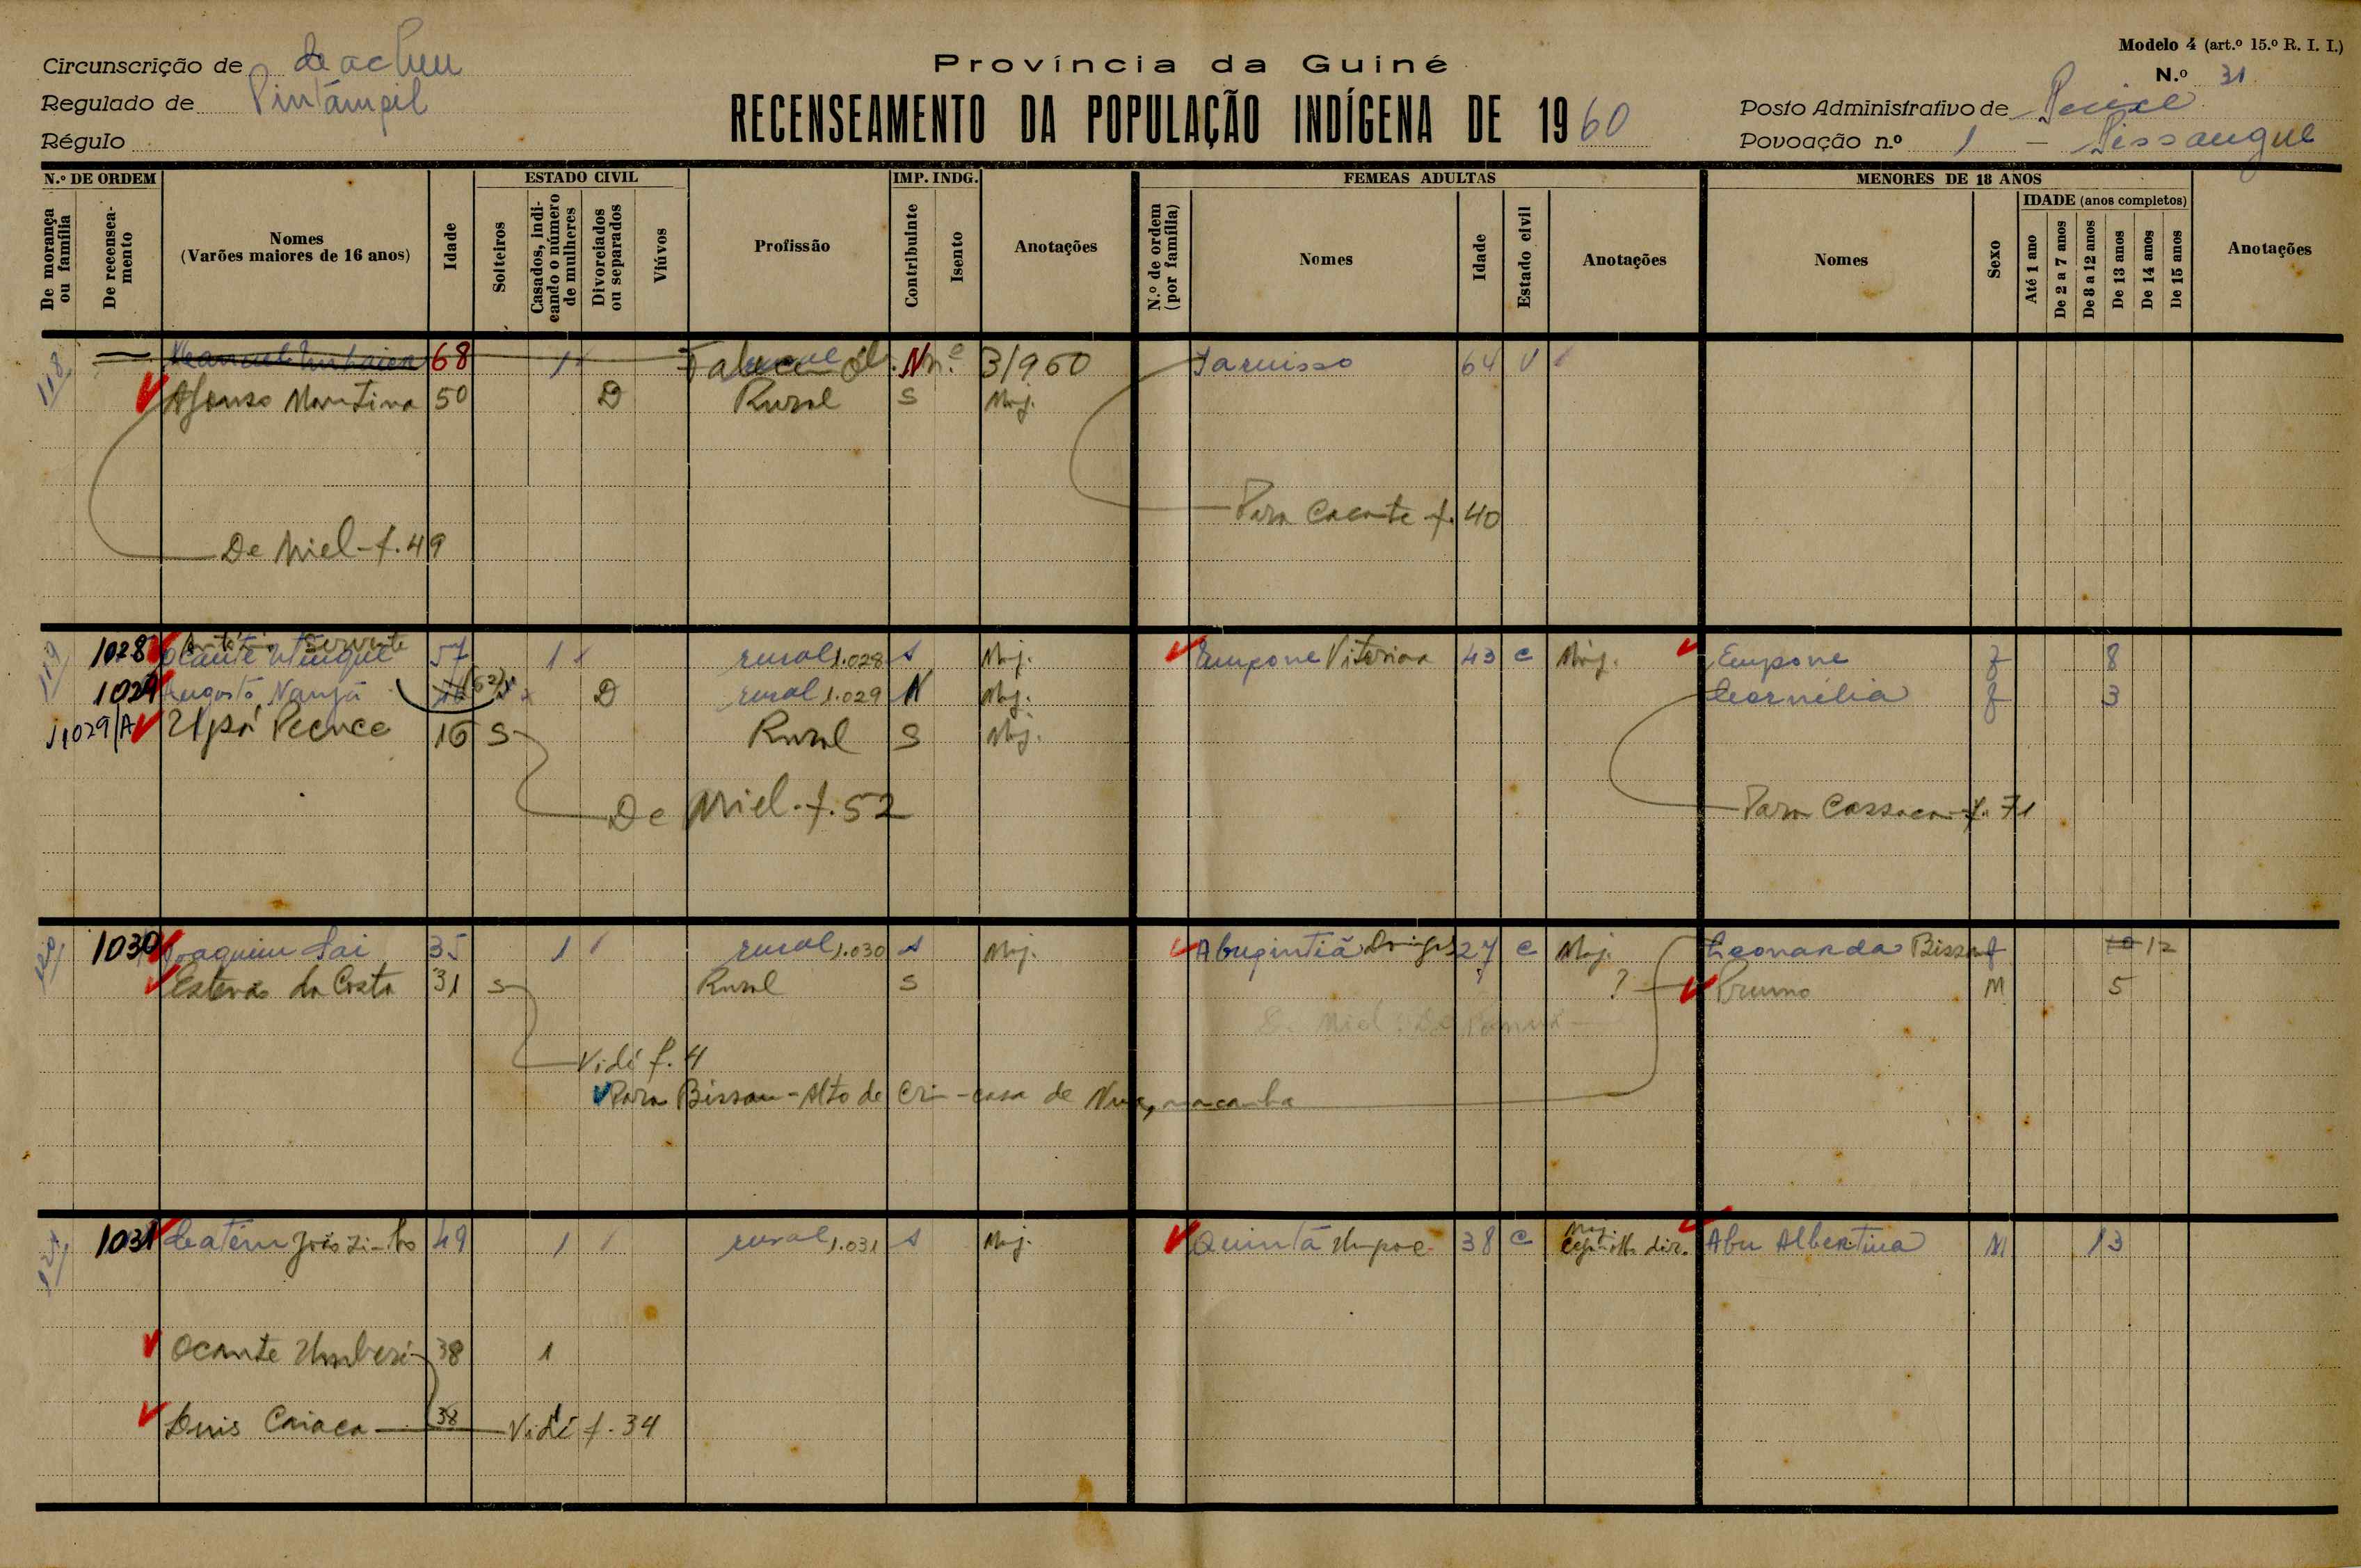 Circunscrição de Cacheu
Regulado de Pintâmpil
Régulo
Província da Guiné
RECENSEAMENTO DA POPULAÇÃO INDÍGENA DE 1960
Modelo 4 (art.º 15.º R. I. I.)
N.º 31
Posto Administrativo de
Povoação n.º 1 - Pissangue
N.º DE ORDEM
De morança ou família
De recensea-mento
Nomes
(Varões maiores de 16 anos)
Idade
ESTADO CIVIL
Solteiros
Casados, indi-cando o número de mulheres
Divorciados ou separados
Viúvos
Profissão
IMP. INDG.
Contribuinte
Isento
Anotações
FEMEAS ADULTAS
N.º de ordem (por família)
Nomes
Idade
Estado civil
Anotações
MENORES DE 18 ANOS
Nomes
Sexo
IDADE (anos completos)
Até 1 ano
De 2 a 7 anos
De 8 a 12 anos
De 13 anos
De 14 anos
De 15 anos
Anotações
118 68 1 N 3/960 64 V
Afonso Martina 50 D Rural S Maj.
Para Cacante f. 40
De Niel - f. 49
119 António
1028 57 1 rural 1.028 Maj. Empone Vitorina 43 C Maj. Empone f 8
1029 Augosto Nanjá D rural 1.029 N Maj. Cornélia f 3
1029/A Upá Pecuce 16 S Rural S Maj.
De Niel - f. 52
Para Cassaca - f. 71
120 1030 Joaquim Sai 35 1 rural 1.030 Maj. Abupintiã 27 C Maj. Leonarda f 10 12
Estevão da Costa 31 S Rural S ? Bruno M 5
Vidé f. 4
Para Bissau - Alto de Crim - casa de
121 1031 Catém Joãozinho 49 1 rural 1.031 Maj. Quintã Umpoe 38 C Maj. Abu Albertina M 13
Ocante Umberi 38 1
Luis Caiaca 38 Vidé f. 34